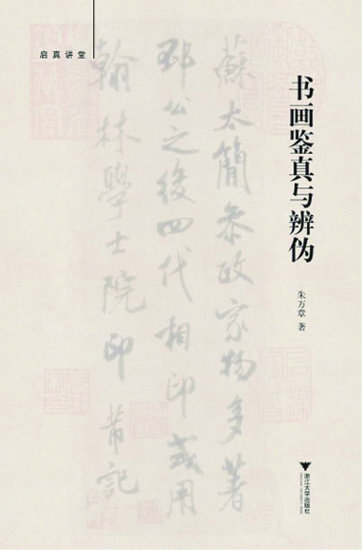 启真讲堂
书画鉴真与辨伪
朱万章 著
蘇太簡參政家物多著
邳公之後四代相印或用
翰林學士院印 芾記
浙江大学出版社